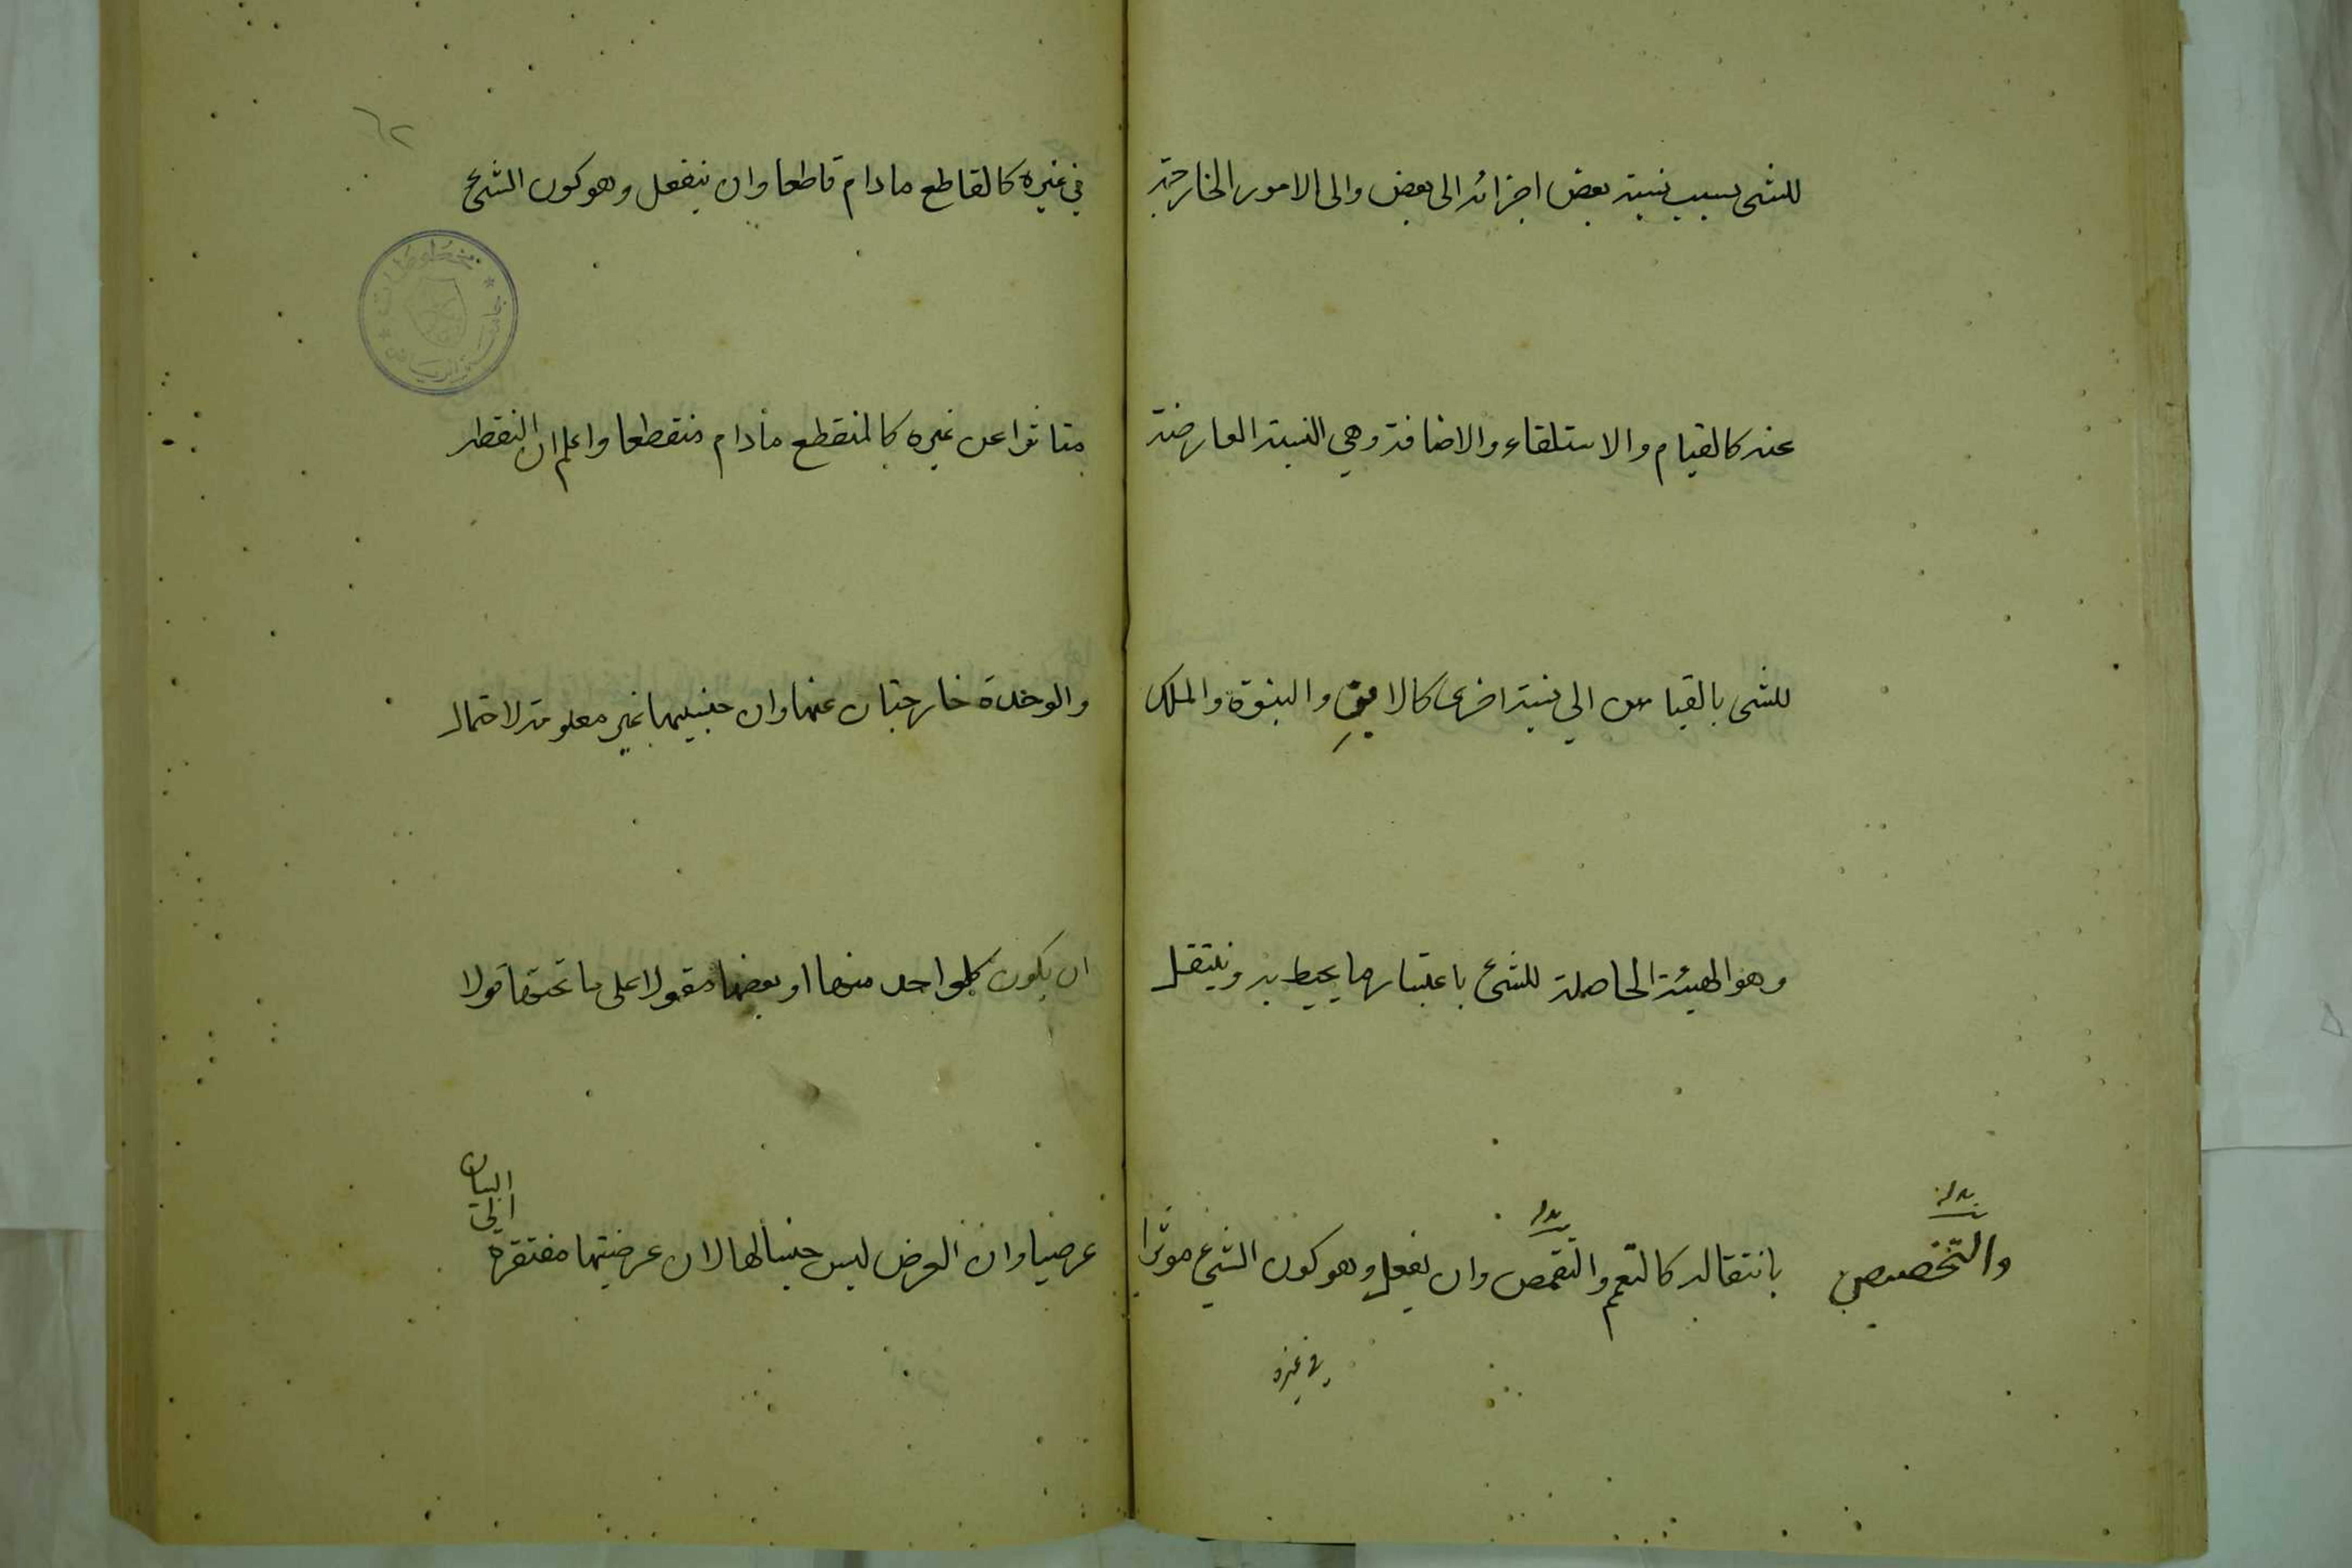 للشى بسبب نسبة بعض اجزائه الى بعض والى الامور الخارجة
عنه كالقيام والاستلقاء والاضافة وهي النسبة العارضة
للشى بالقياس الي نسبة اخرى كالابوة والبنوة والملك
وهو الهيئة الحاصلة للشئ باعتبار ما يحيط به وينتقل
بانتقاله كالتعمم والتقمص وان يفعل وهو كون الشئ موثرا
بدل
بدل
والتخصيص
في غيره
٦٢
في غيره كالقاطع مادام قاطعا وان ينفعل وهو كون الشئ
متاثرا عن غيره كالمنقطع مادام منقطعا واعلم ان النقطه
والوحدة خارجتان عنها وان جنسيهما غير معلومة لاحتمال
ان يكون كل واحد منها او بعضها مقولا على ما تحتها قولا
عرضيا وان العرض ليس جنسا لها لان عرضيتها مفتقرة
الي
البيان
مخطوطات
جامعة الرياض